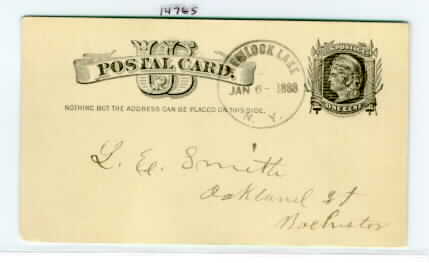 14765
US
POSTAL CARD.
NOTHING BUT THE ADDRESS CAN BE PLACED ON THIS SIDE.
HEMLOCK LAKE
JAN 6 - 1883
N. Y.
POSTAGE
ONE CENT
L. E. Smith
Oakland St
Rochester